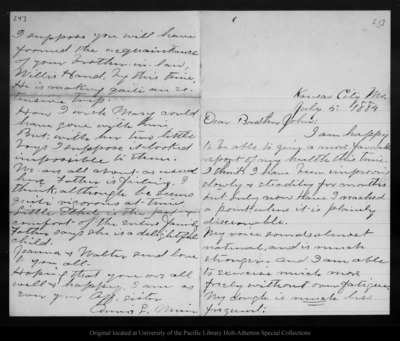 Kansas City, Mo.
July 5, 1884
Dear Brother John:
I am happy
to be able to give a more favorable
report of my health this time.
I think I have been improving
slowly & steadily for months
but only now have I reached
a point where it is plainly
discernable.
My voice sounds almost
natural, and is much
stronger. And I am able
to exercise much more
freely without over fatigue.
My cough is much less
frequent.
I suppose you will have
formed the acquaintance
of your brother-in-law,
Willis Hand, by this time.
He is making quite an ex-
tensive trip.
How I wish Mary could
have gone with him.
But with her two little
boys I suppose it looked
impossible to them.
We are all about as usual
here. Father is failing I
think, although he seems
quite vigorous at times.
Little Ethel is the pet &
comfort of the entire family.
Father says she is a delightful
child.
Joanna & Walter send love
to you all.
Hoping that you are all
well & happy, I am as
ever your Aff. sister
Annie L. Muir
Original located at University of the Pacific Library Holt-Atherton Special Collections